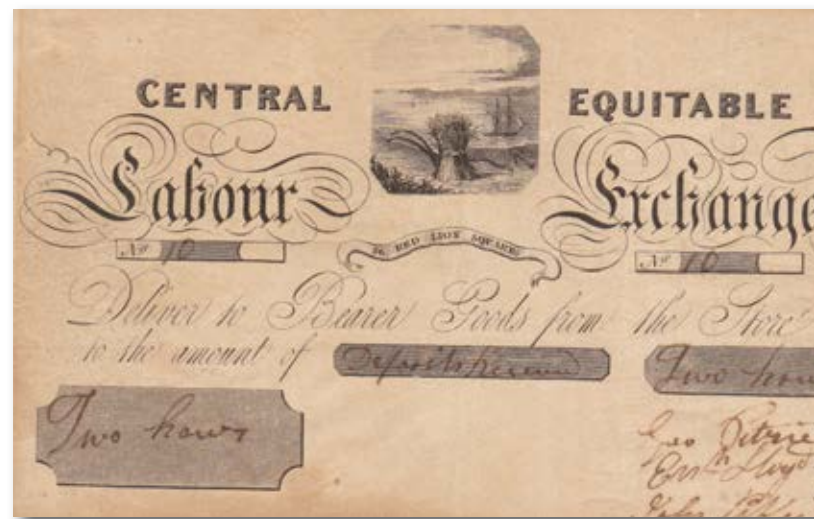 CENTRAL EQUITABLE
Labour Exchange
No 10 No 10
RED LION SQUARE
Deliver to Bearer Goods from the Store
to the amount of Two hou
Two hours
Geo Petrie